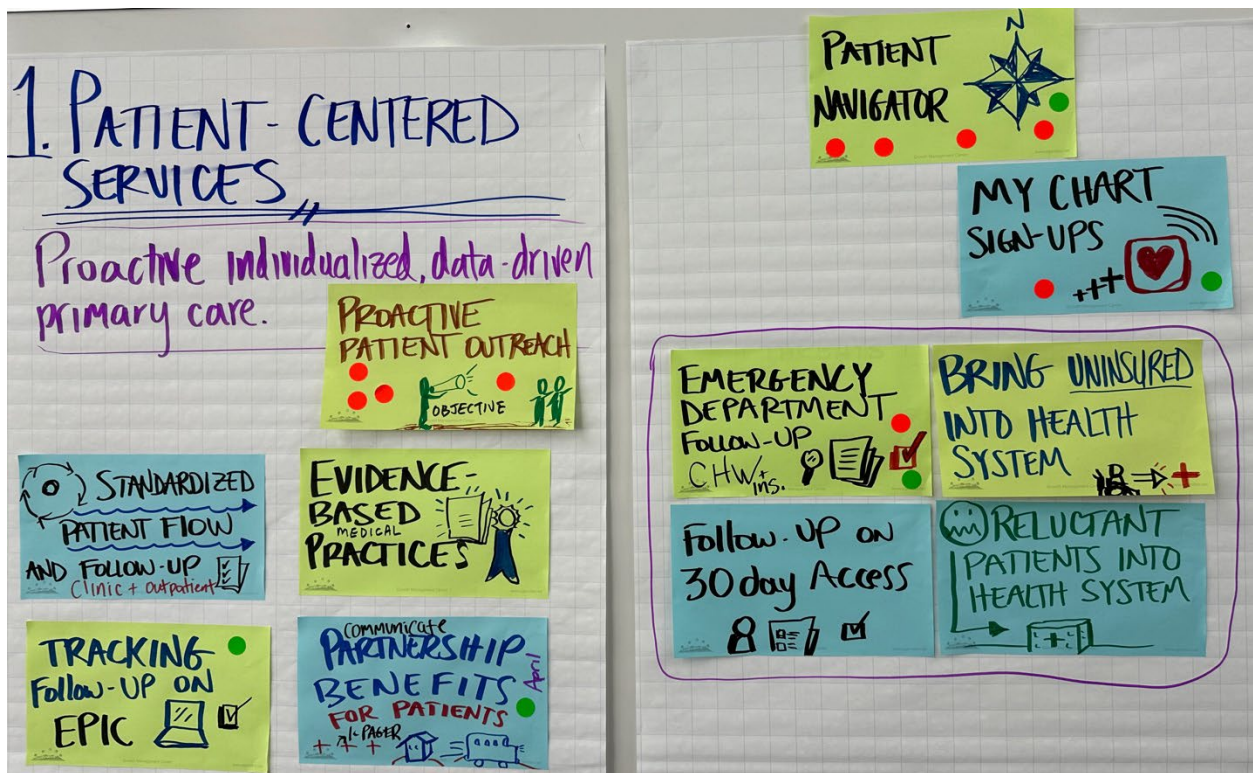 1. PATIENT-CENTERED
SERVICES
Proactive individualized, data-driven
primary care.
PROACTIVE
PATIENT OUTREACH
OBJECTIVE
STANDARDIZED
PATIENT FLOW
AND FOLLOW-UP
Clinic + Outpatient
EVIDENCE-
BASED
MEDICAL
PRACTICES
TRACKING
Follow-UP ON
EPIC
communicate
PARTNERSHIP
BENEFITS
April
FOR PATIENTS
1-PAGER
N
PATIENT
NAVIGATOR
MY CHART
SIGN-UPS
EMERGENCY
DEPARTMENT
Follow-UP
CHW + ins.
BRING UNINSURED
INTO HEALTH
SYSTEM
Follow-UP ON
30 day Access
RELUCTANT
PATIENTS INTO
HEALTH SYSTEM